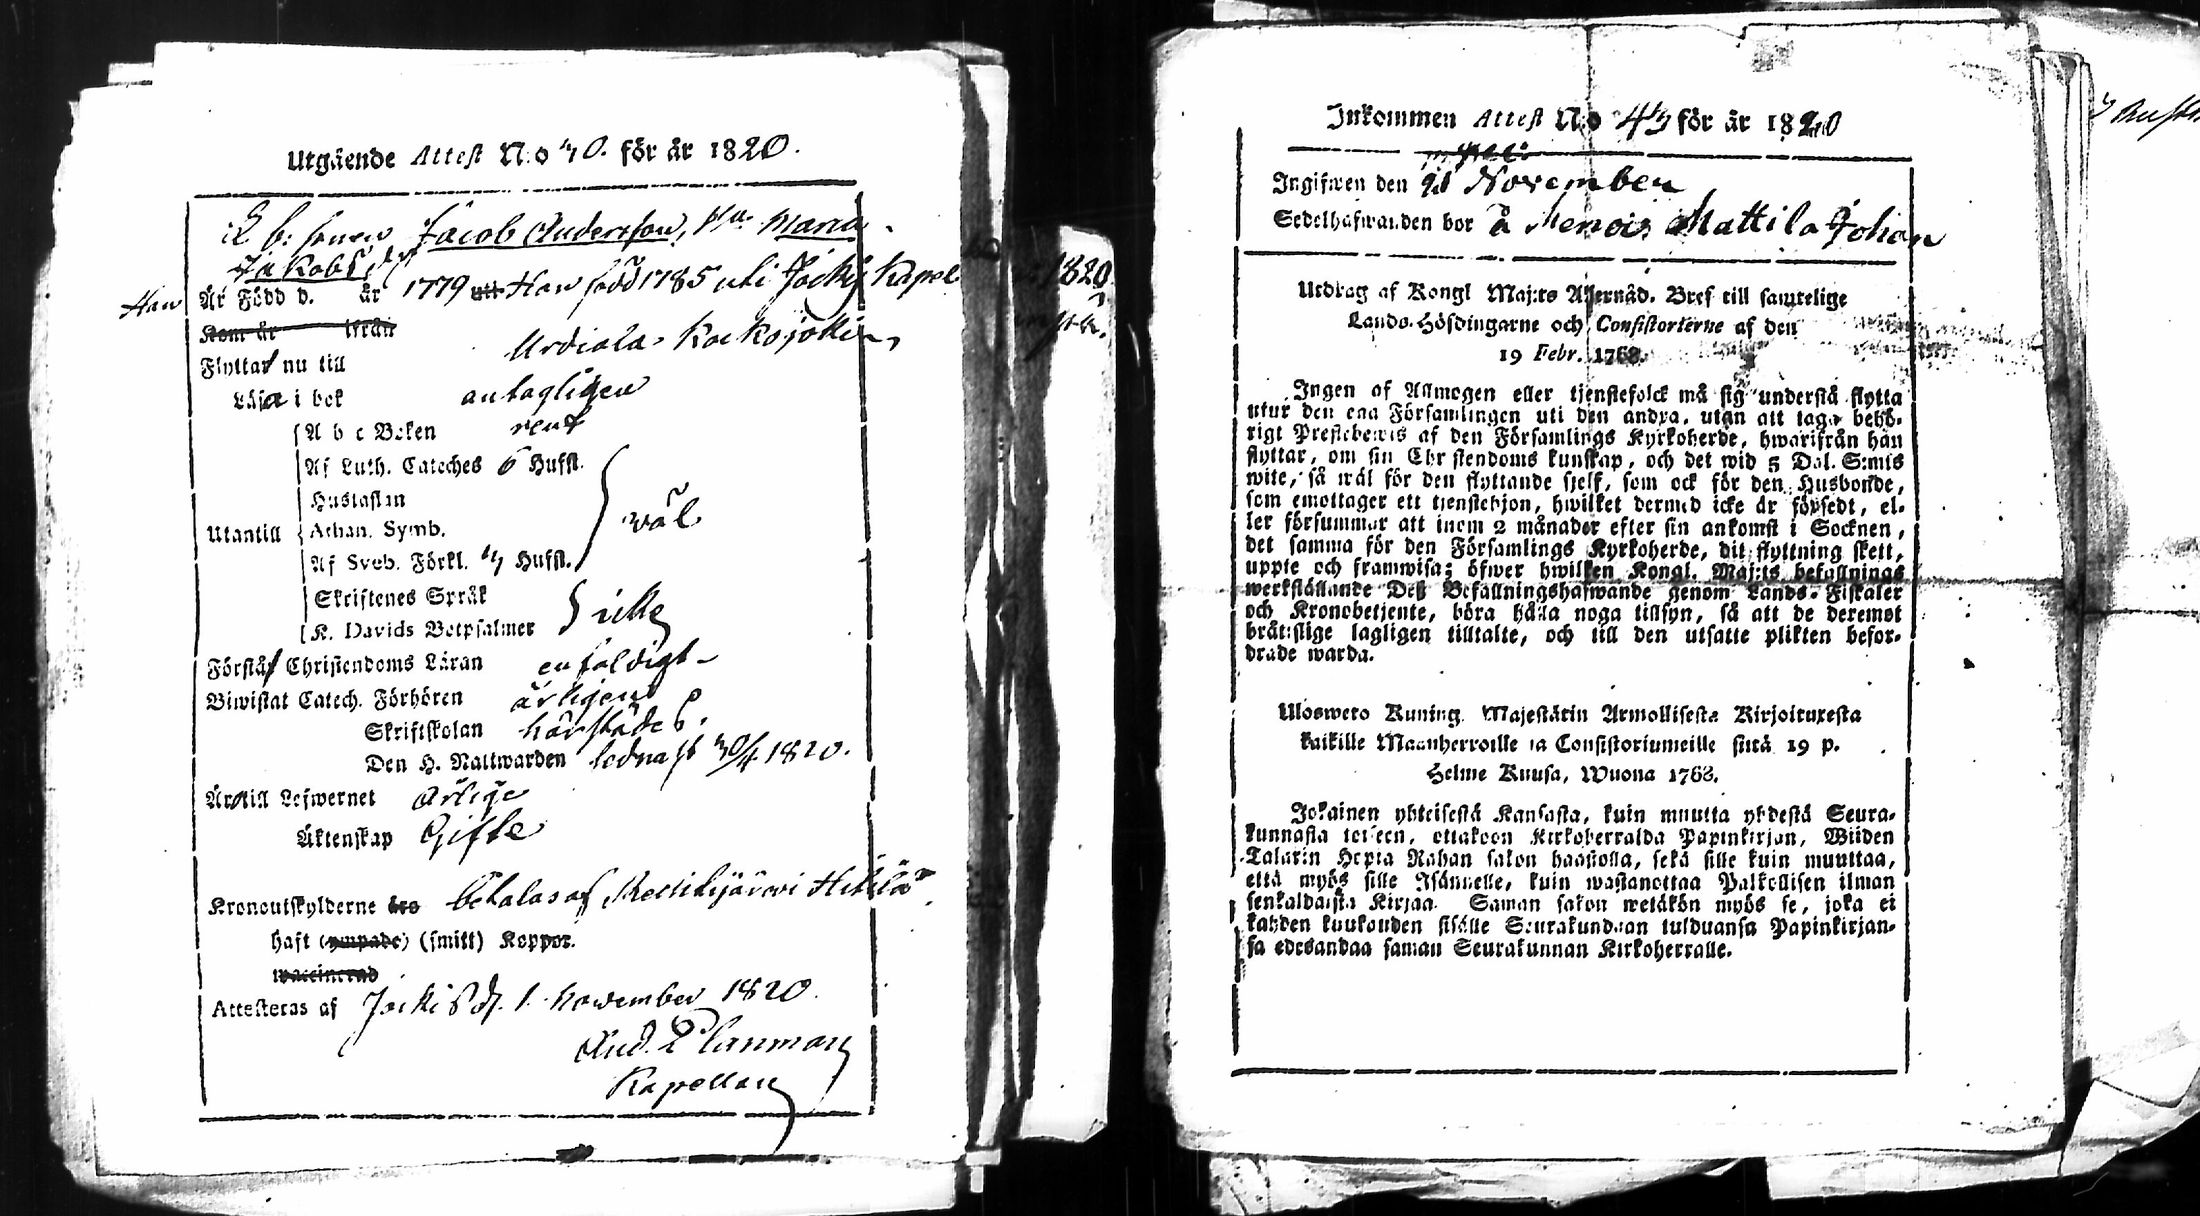 Utgående Attest N:o 30. för år 1820.
E. b: sonen Jacob Andersson, Hu. Maria
Jakobsdr
Han Är Född d. år 1779 Hon född 1785 uti Jockis Kapel
Kom år ifrån
Flyttar nu till Urdiala, Kockojocki
Läsa i bok antagligen
A b c Boken rent
Af Luth. Cateches 6 Hufst.
Hustaflan
Utantill Athan. Symb. wäl
Af Sveb. Förkl. 3 Hufst.
Skriftenes Språk
K. Davids Botpsalmer icke
Förstå Christendoms Läran enfaldigt
Biwistat Catech. Förhören årligen
Skriftskolan härstädes.
Den H. Nattwarden sednast 30/4 1820.
Äro till Lefwernet ärlige
Äktenskap Gifte
Kronoutskylderne äro betalas af
haft (ympade) (smitt) Koppor.
waccinerad
Attesteras af Jockis d. 1 November 1820.
And. Planman
Kapellan
1820
Inkommen Attest No 43 för år 1820
Ingifwen den November
Sedelhafwanden bor å Menois Mattila Johan
Utdrag af Kongl Maj:ts Allernåd. Bref till samtelige
Lands-Höfdingarne och Consistorierne af den
19 Febr. 1768.
Ingen af Allmogen eller tjenstefolck må sig understå flytta
utur den ena Församlingen uti den andra, utan att taga behö-
rigt Prestebewis af den Församlings Kyrkoherde, hwarifrån han
flyttar, om sin Christendoms kunskap, och det wid 5 Dal. S:mts
wite, så wäl för den flyttande sjelf, som ock för den Husbonde,
som emottager ett tjenstehjon, hwilket dermed icke är försedt, el-
ler försummar att inom 2 månader efter sin ankomst i Socknen,
det samma för den Församlings Kyrkoherde, dit flyttning skett,
uppte och framwisa; öfwer hwilken Kongl. Maj:ts befallnings
werkställande Deß Befallningshafwande genom Lands-Fiskaler
och Kronobetjente, böra hålla noga tillsyn, så att de deremot
bråttslige lagligen tilltalte, och till den utsatte plikten befor-
drade warda.
Uloswero Kuning. Majestätin Armollisesta Kirjoituxesta
kaikille Maanherroille ja Consistoriumeille siitä 19 p.
Helme Kuusa, Wuona 1768.
Jokainen yhteisestä Kansasta, kuin muutta yhdestä Seura-
kunnasta toiseen, ottakoon Kirkoherralda Papinkirjan, Wiiden
Talarin Hopia Rahan sakon haastolla, sekä sille kuin muuttaa,
että myös sille Isännelle, kuin wastanottaa Palkollisen ilman
senkaldaista Kirjaa. Saman sakon wetäkön myös se, joka ei
kahden kuukauden sisälle Seurakundaan tulduansa Papinkirjan-
sa edesandaa saman Seurakunnan Kirkoherralle.